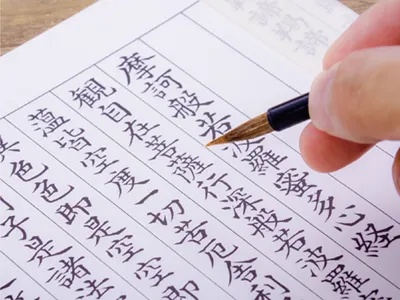 摩訶般若波羅蜜多心経
観自在菩薩行深般若波羅
蘊皆空度一切苦厄舎利
異色色即是空空即
子是諸法